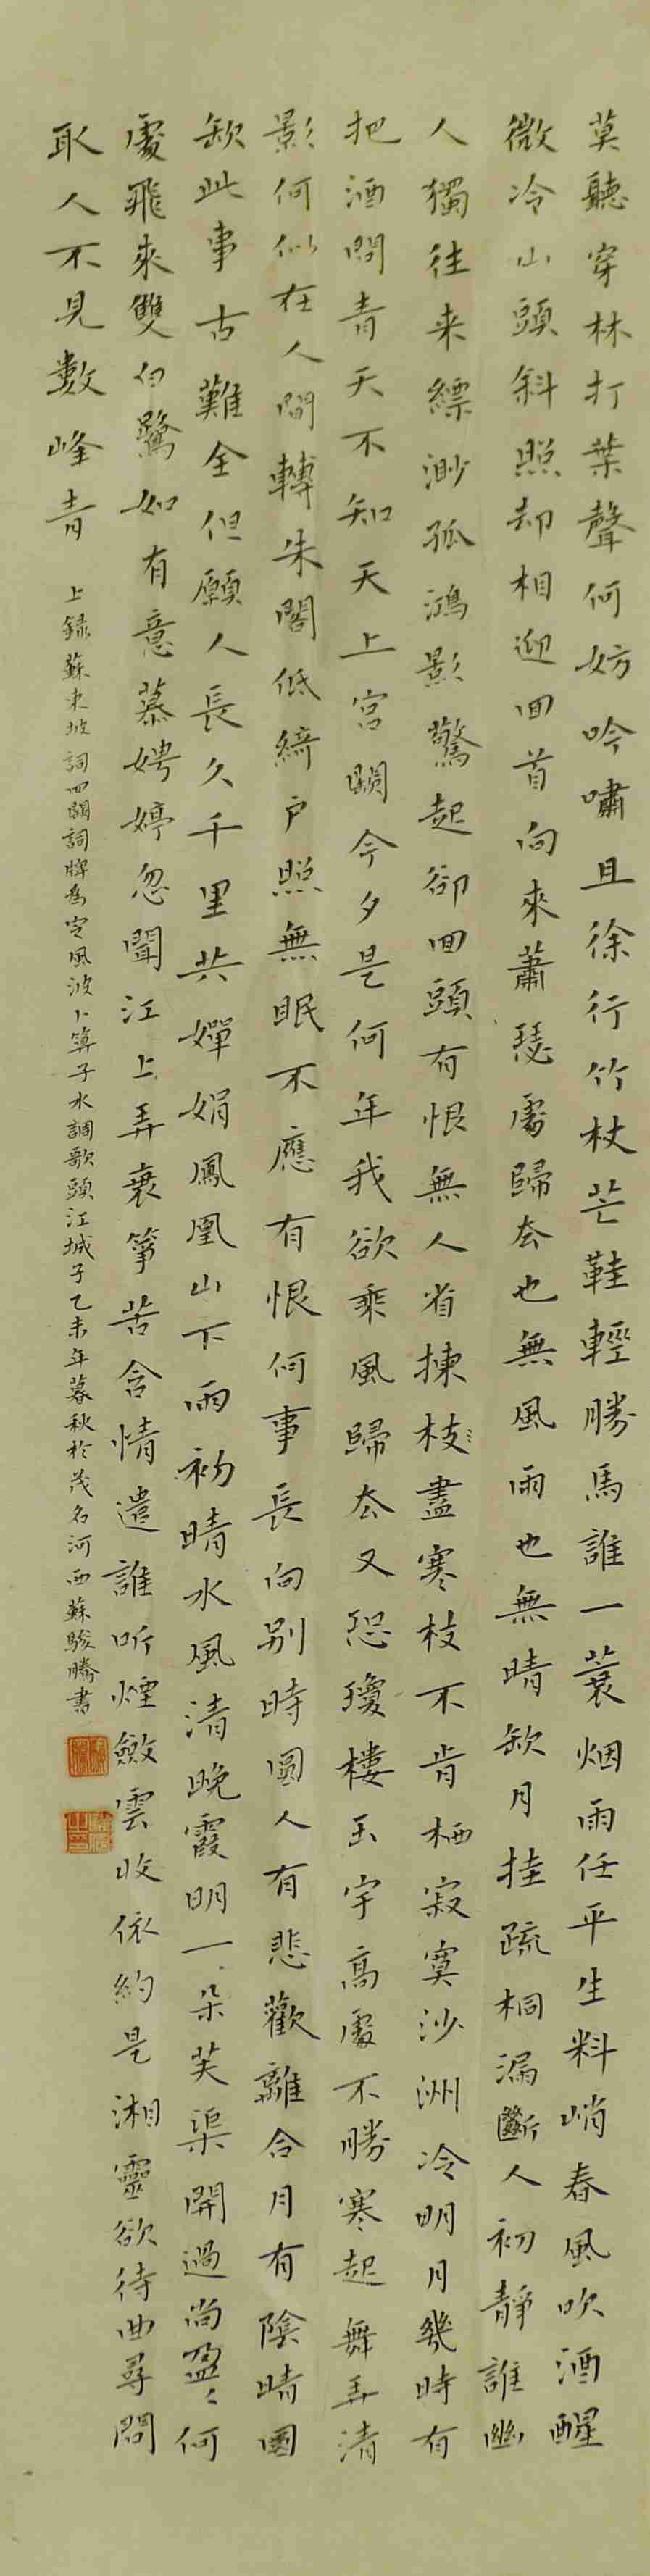 莫聽穿林打葉聲何妨吟嘯且徐行竹杖芒鞋輕勝馬誰一蓑烟雨任平生料峭春風吹酒醒
微冷山頭斜照却相迎回首向來蕭瑟處歸去也無風雨也無晴缺月挂疏桐漏斷人初靜誰幽
人獨往来縹渺孤鴻影驚起卻回頭有恨無人省揀枝盡寒枝不肯栖寂寞沙洲冷明月幾時有
把酒問青天不知天上宮闕今夕是何年我欲乘風歸去又恐瓊樓玉宇高處不勝寒起舞弄清
影何似在人間轉朱閣低綺户照無眠不應有恨何事長向别時圓人有悲歡離合月有陰晴圓
缺此事古難全但願人長久千里共嬋娟鳳凰山下雨初晴水風清晚霞明一朵芙渠開過尚盈〻何
處飛來雙白鷺如有意慕娉婷忽聞江上弄哀箏苦含情遣誰听煙斂雲收依約是湘靈欲待曲尋問
取人不見數峰青
上録蘇東坡詞四闋詞牌為定風波卜算子水調歌頭江城子乙未年暮秋於茂名河西蘇駿騰書